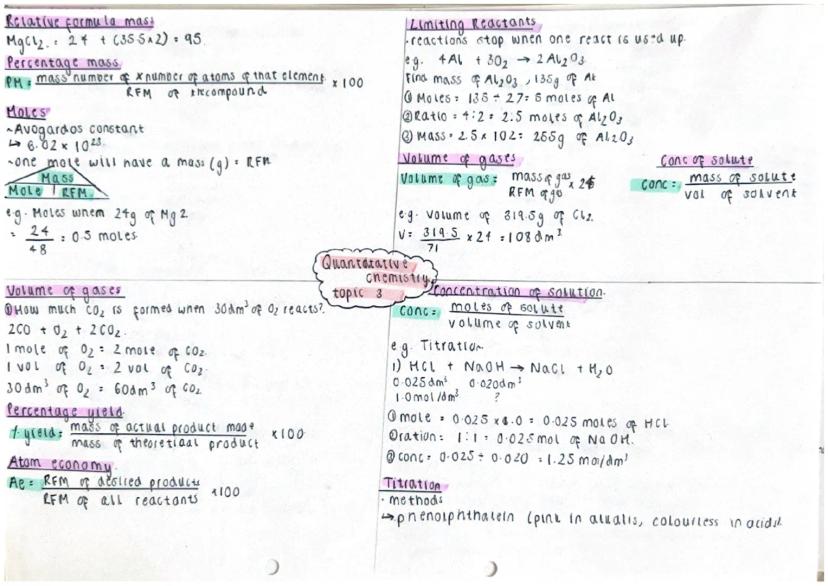 Relative formula mass
MgCl2 = 24 + (35.5x2) = 95.
Percentage mass
PM = mass number of x number of atoms of that element x 100
RFM of the compound
Moles
~Avogardos constant
↳ 6.02 x 10²³
~one mole will have a mass (g) = RFM
Mass
Mole | RFM
eg. Moles whem 24g of Mg2
= 24 = 0.5 moles
48
Limiting Reactants
·reactions stop when one react is used up.
eg. 4Al + 3O2 → 2Al2O3
Find mass of Al2O3, 135g of Al
① Moles = 135 ÷ 27 = 5 moles of Al
② Ratio = 4:2 = 2.5 moles of Al2O3
③ Mass = 2.5 x 102 = 255g of Al2O3
Volume of gases
Volume of gas = mass of gas x 24
RFM of
eg. Volume of 319.5g of Cl2.
V = 319.5 x 24 = 108dm³
71
Conc of solute
conc = mass of solute
vol of solvent
Quantitative
chemistry
topic 3
Volume of gases
① How much CO2 is formed when 30dm³ of O2 reacts?
2CO + O2 + 2CO2
1 mole of O2 = 2 mole of CO2
1 vol of O2 = 2 vol of CO2
30dm³ of O2 = 60dm³ of CO2
Percentage yield
% yield = mass of actual product made x100
mass of theoretical product
Atom economy
Ae = RFM of desired products x100
RFM of all reactants
Concentration of solution
conc = moles of solute
volume of solvent
eg. Titration
1) HCl + NaOH → NaCl + H2O
0.025dm³ 0.020dm³
1.0mol/dm³ ?
① mole = 0.025 x 1.0 = 0.025 moles of HCl
② ration = 1:1 = 0.025mol of NaOH.
③ conc = 0.025 ÷ 0.020 = 1.25 mol/dm³
Titration
· methods
↳ phenolphthalein (pink in alkalis, colourless in acids)